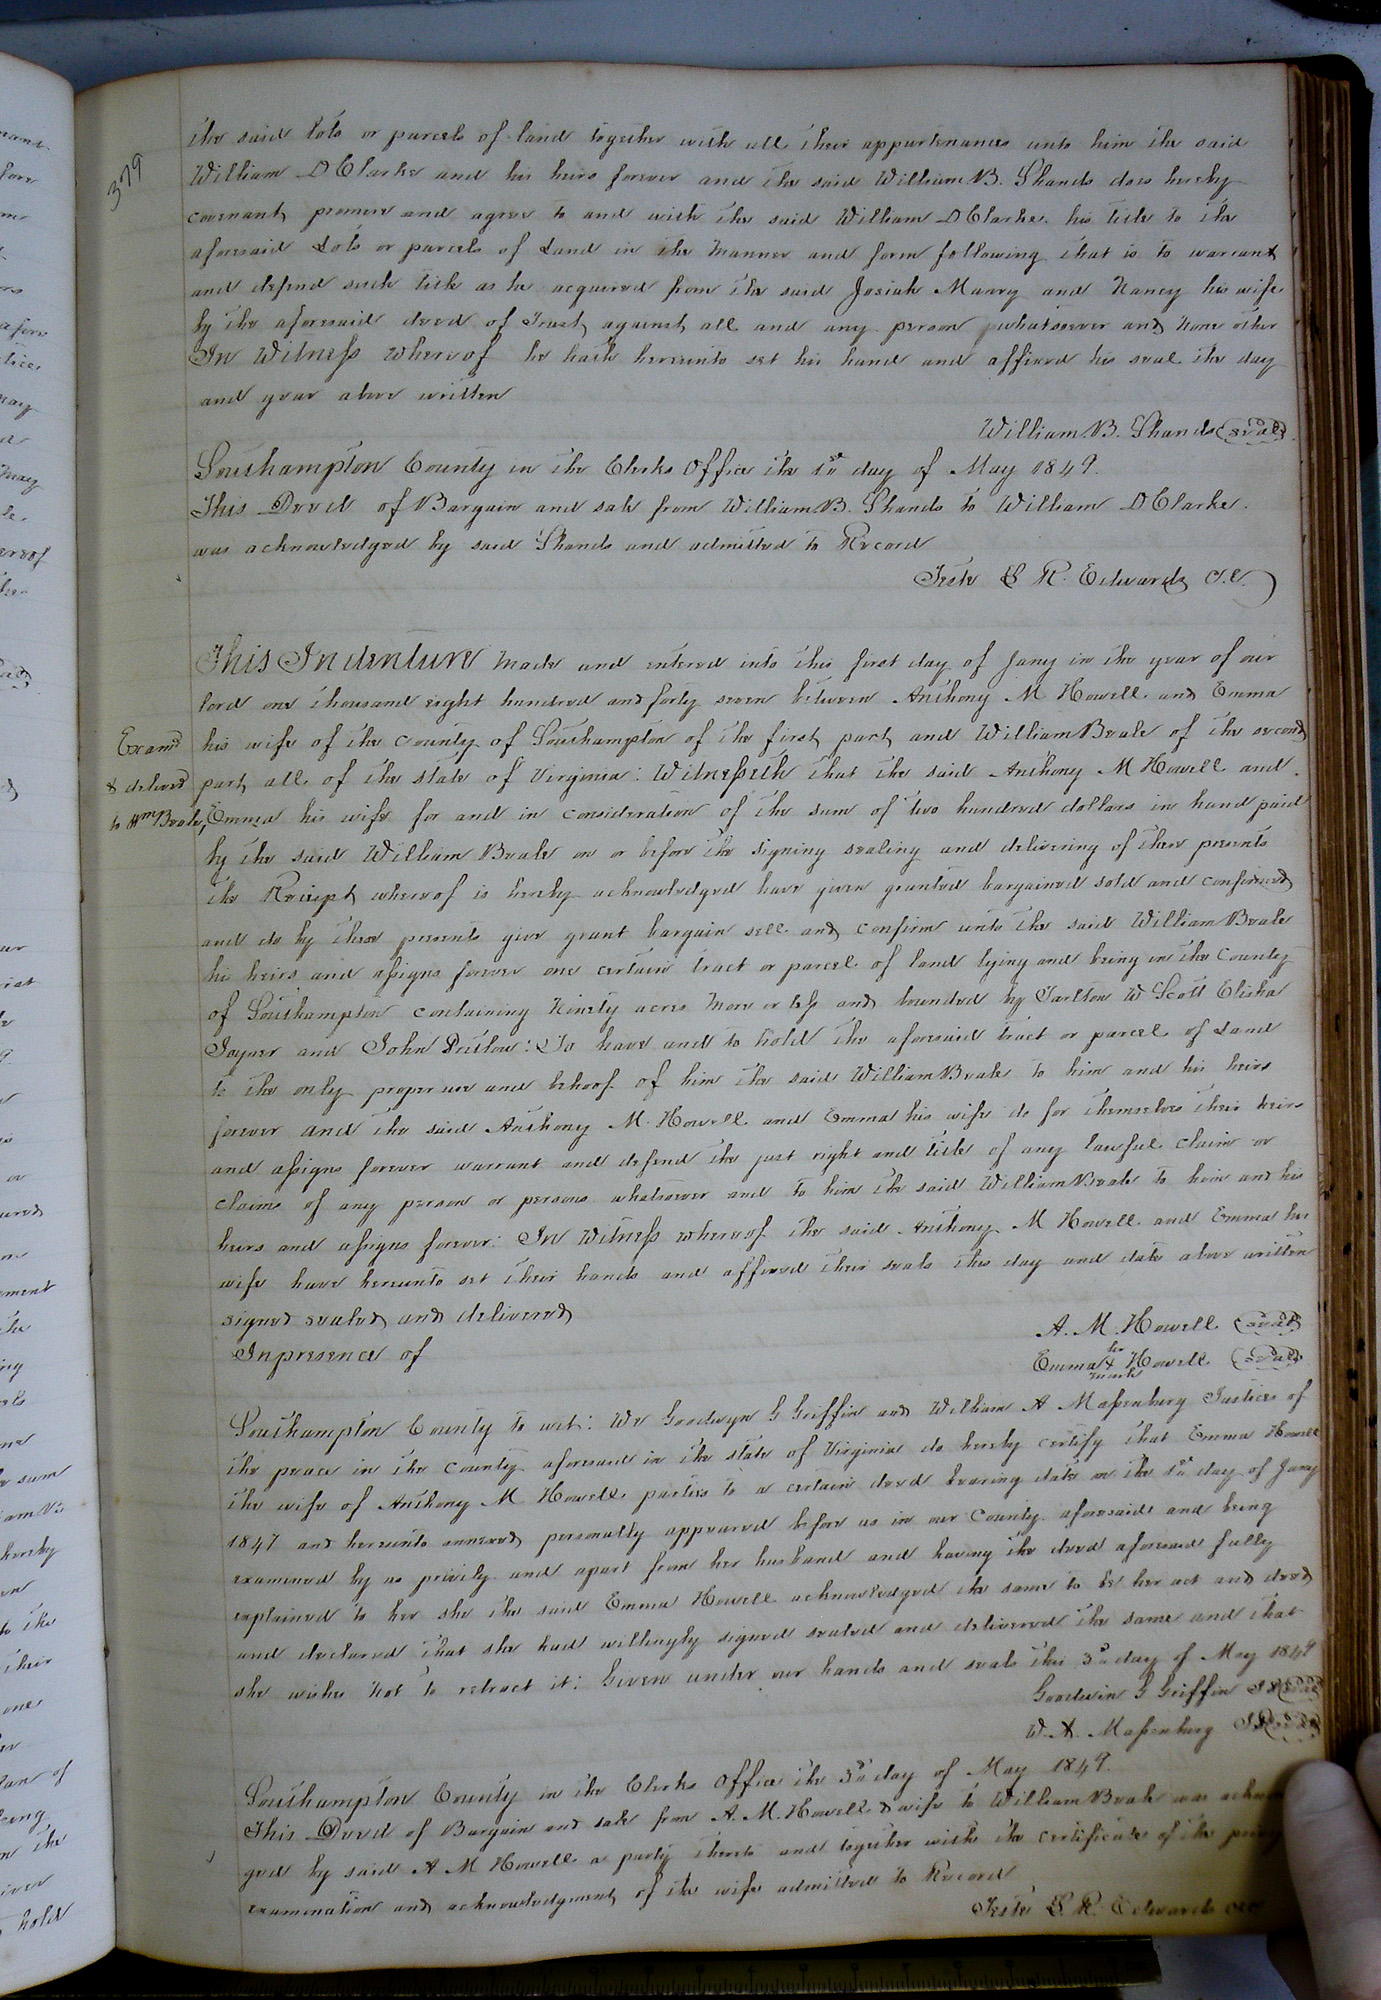 379
the said lots or parcels of land together with all their appurtenances unto him the said
William D Clarke and his heirs forever and the said William B. Shands does hereby
covenant, promise and agree to and with the said William D Clarke. his title to the
aforesaid Lots or parcels of Land in the manner and form following that is to warrant
and defend such title as he acquired from the said Josiah Maury and Nancy his wife
by the aforesaid deed of Trust, against, all and any person whatsoever and none other
In Witness whereof he hath hereunto set his hand and affixed his seal the day
and year above written
William B. Shands (seal)
Southampton County in the Clerks Office the 1st day of May 1849.
This Deed of Bargain and sale from William B. Shands to William D Clarke.
was acknowledged by said Shands and admitted to Record
Teste L R. Edwards C.C.
This Indenture made and entered into this first day of Jany in the year of our
lord one thousand eight hundred and forty seven between Anthony M Howell and Emma
his wife of the County of Southampton of the first part, and William Beale of the second
part, all of the state of Virginia: Witnesseth that the said Anthony M Howell and
Emma his wife for and in consideration of the sum of two hundred dollars in hand paid
Examd
& delived
to Wm Beale,
by the said William Beale on or before the signing sealing and delivering of these presents
the Receipt, whereof is hereby acknowledged have given granted bargained sold and confirmed
and do by these presents give grant bargain sell and confirm unto the said William Beale
his heirs and assigns forever one certain tract or parcel of land lying and being in the County
of Southampton containing Ninety acres more or less and bounded by Tarlton W Scott Elisha
Joyner and John : To have and to hold the aforesaid tract or parcel of Land
to the only proper use and behoof of him the said William Beale to him and his heirs
forever and the said Anthony M. Howell and Emma his wife do for themselves their heirs
and assigns forever warrant and defend the just right and title of any lawful claim or
claims of any person or persons whatsoever and to him the said William Beale to him and his
heirs and assigns forever: In Witness whereof the said Anthony M Howell and Emma his
wife have hereunto set their hands and affixed their seals this day and date above written
signed sealed and delivered
In presence of
A. M. Howell (seal)
Emma her X mark Howell (seal)
Southampton County to wit: We Goodwyn G Griffin and William A Massenburg Justices of
the peace in the County aforesaid in the state of Virginia do hereby certify that Emma Howell
the wife of Anthony M Howell parties to a certain deed bearing date on the 1st day of Jany
1847 and hereunto annexed, personally appeared before us in our County aforesaid and being
examined by us privily and apart from her husband and having the deed aforesaid fully
explained to her she the said Emma Howell acknowledged the same to be her act and deed
and declared that she had willingly signed sealed and delivered the same and that
she wishes not to retract it: Given under our hands and seals this 3d day of May 1849
Goodwin G Griffin J.P. (seal)
W. A. Massenburg J.P. (seal)
Southampton County in the Clerks Office the 3d day of May 1849.
This Deed of Bargain and sale from A. M. Howell & wife to William Beale was
ged by said A M Howell a party thereto and together with the certificate of the
examination and acknowledgment, of the wife admitted to Record
Teste L. R. Edwards CC